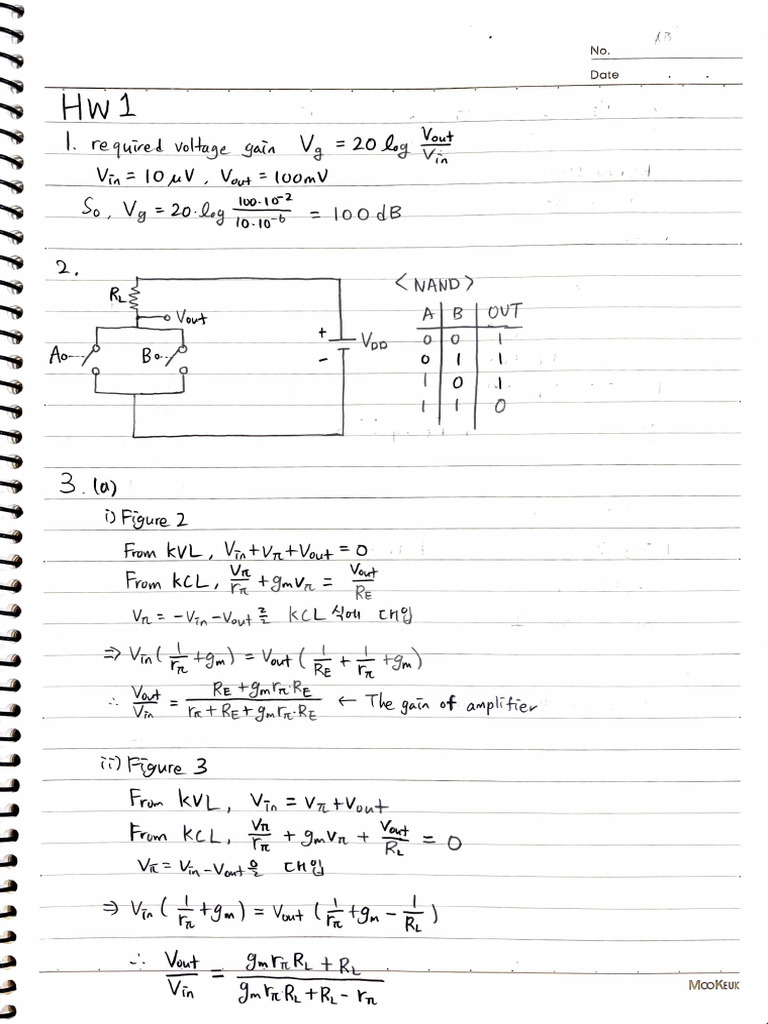 No.
Date . .
HW1
1. required voltage gain Vg = 20 log Vout/Vin
Vin = 10 μV , Vout = 100mV
So, Vg = 20·log 100·10⁻²/10·10⁻⁶ = 100 dB
2.
<NAND>
RL
Vout
A
B
+
-
VDD
A B OUT
0 0 1
0 1 1
1 0 1
1 1 0
3. (a)
i) Figure 2
From KVL, Vin+Vπ+Vout = 0
From KCL, Vπ/rπ + gmVπ = Vout/RE
Vπ = -Vin-Vout를 KCL 식에 대입
⇒ Vin(1/rπ + gm) = Vout(1/RE + 1/rπ + gm)
∴ Vout/Vin = RE+gmrπ·RE/rπ+RE+gmrπ·RE ← The gain of amplifier
ii) Figure 3
From KVL, Vin = Vπ+Vout
From KCL, Vπ/rπ + gmVπ + Vout/RL = 0
Vπ = Vin-Vout을 대입
⇒ Vin(1/rπ + gm) = Vout(1/rπ + gm - 1/RL)
∴ Vout/Vin = gmrπRL + RL/gmrπRL+RL-rπ
MOOKEUK